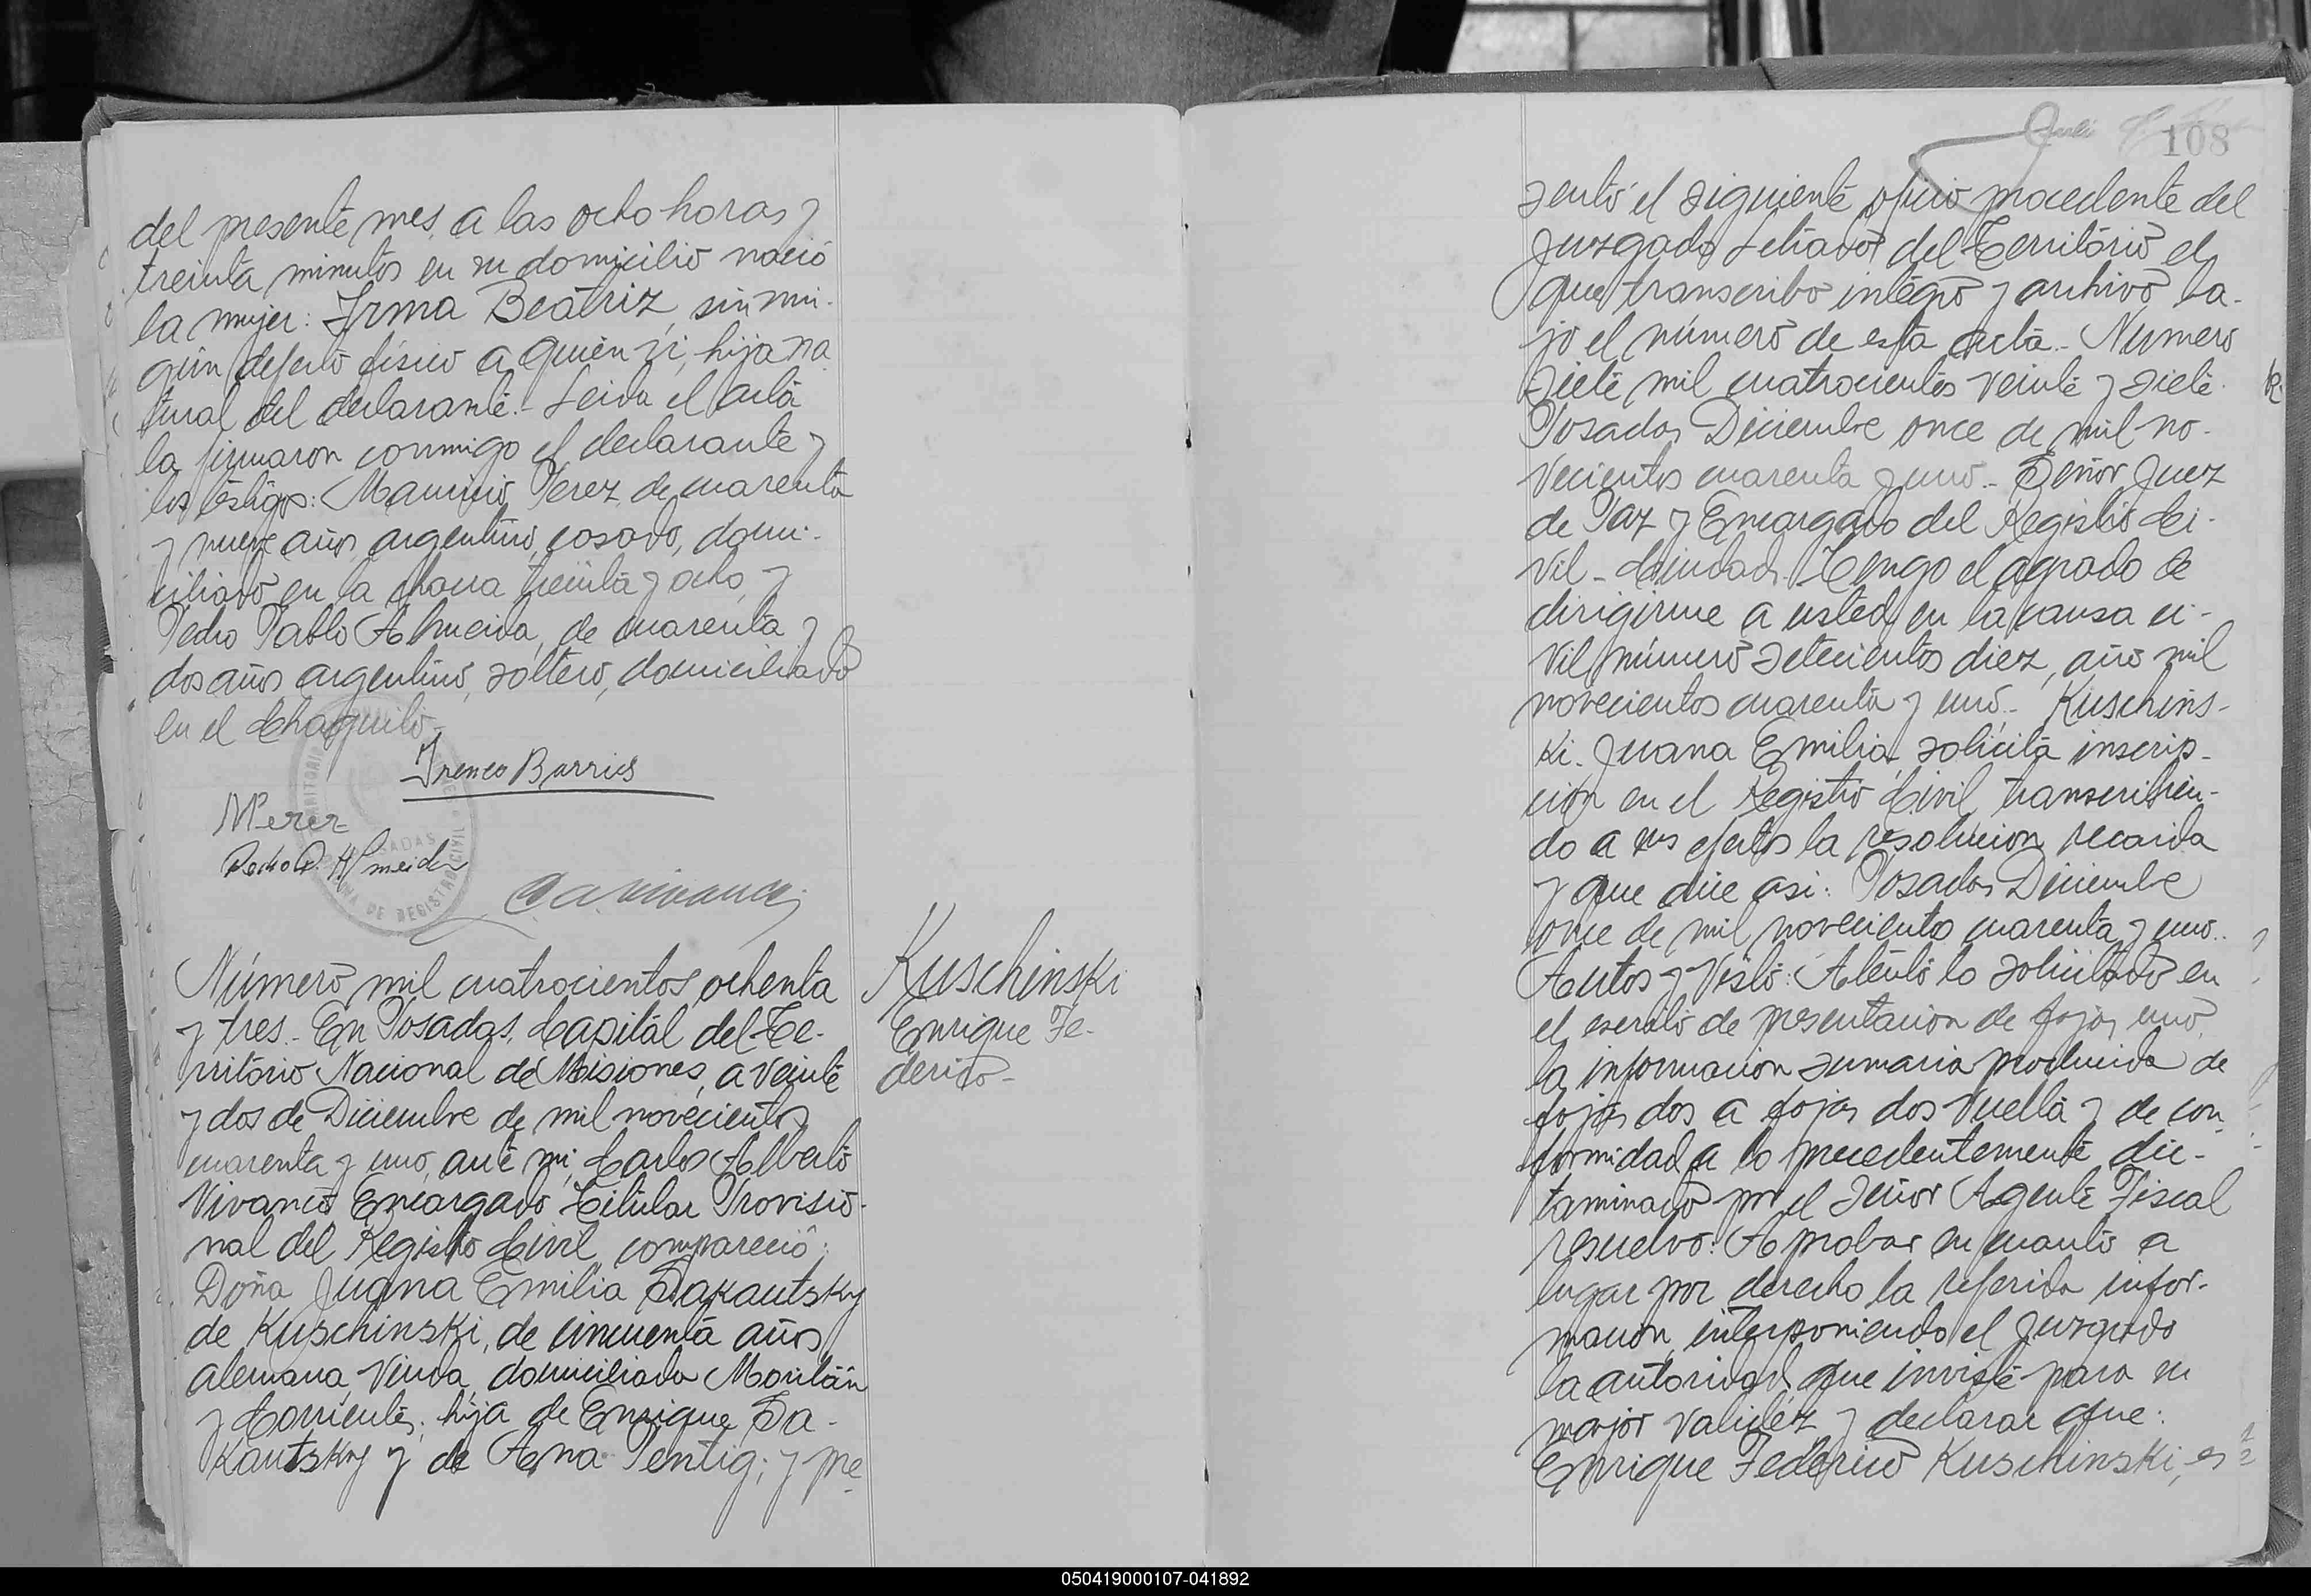 del presente mes, a las ocho horas y
treinta minutos en su domicilio nació
la mujer: Irma Beatriz, sin nin-
gún defecto físico a quien ví, hija na
tural del declarante.- Leida el acta
la firmaron conmigo el declarante y
los testigos: Mauricio Perez, de cuarenta
y nueve años, argentino, casado, domi-
ciliado en la chacra treinta y ocho, y
Pedro Pablo Almeida, de cuarenta y
dos años, argentino, soltero, domiciliado
en el Chaquito.-
Ireneo Barrios
MPerez
Pedro P. Almeida
CAVivanco
Número mil cuatrocientos ochenta
y tres.- En Posadas, Capital del Te-
rritorio Nacional de Misiones, a veinte
y dos de Diciembre de mil novecientos
cuarenta y uno, ante mi, Carlos Alberto
Vivanco Encargado Titular Provisio-
nal del Registro Civil, compareció:
Doña Juana Emilia Sakautsky
de Kuschinski, de cincuenta años
alemana, Viuda, domiciliada
y Corrientes; hija de Enrique Sa-
kautsky y de Ana Pentig; y pre-
Kuschinski
Enrique Fe-
derico-
108
sentó el siguiente oficio procedente del
Juzgado Letrado del Territorio el
que transcribo integro y archivo ba-
jo el número de esta acta.- Numero
Siete mil cuatrocientos veinte y siete.
Posadas Diciembre once de mil no-
vecientos cuarenta y uno.- Señor Juez
de Paz y Encargado del Registro Ci-
vil - Ciudad. Tengo el agrado de
dirigirme a usted en la causa ci-
vil número setecientos diez, año mil
novecientos cuarenta y uno.- Kuschins-
ki. Juana Emilia, solicita inscrip-
ción en el Registro Civil, transcribien-
do a sus efectos la resolucion recaida
y que dice asi: Posadas Diciembre
once de mil novecientos cuarenta y uno..
Autos y Visto: Atento lo solicitado en
el escrito de presentacion de fojas uno,
la informacion sumaria producida de
fojas dos a fojas dos vuelta y de con-
formidad a lo precedentemente dic-
taminado por el Señor Agente Fiscal
resuelvo: Aprobar en cuanto a
lugar por derecho la referida infor-
macion, interponiendo el Juzgado
la autoridad que inviste para su
mayor validéz y declarar que:
Enrique Federico Kuschinski, es
050419000107-041892